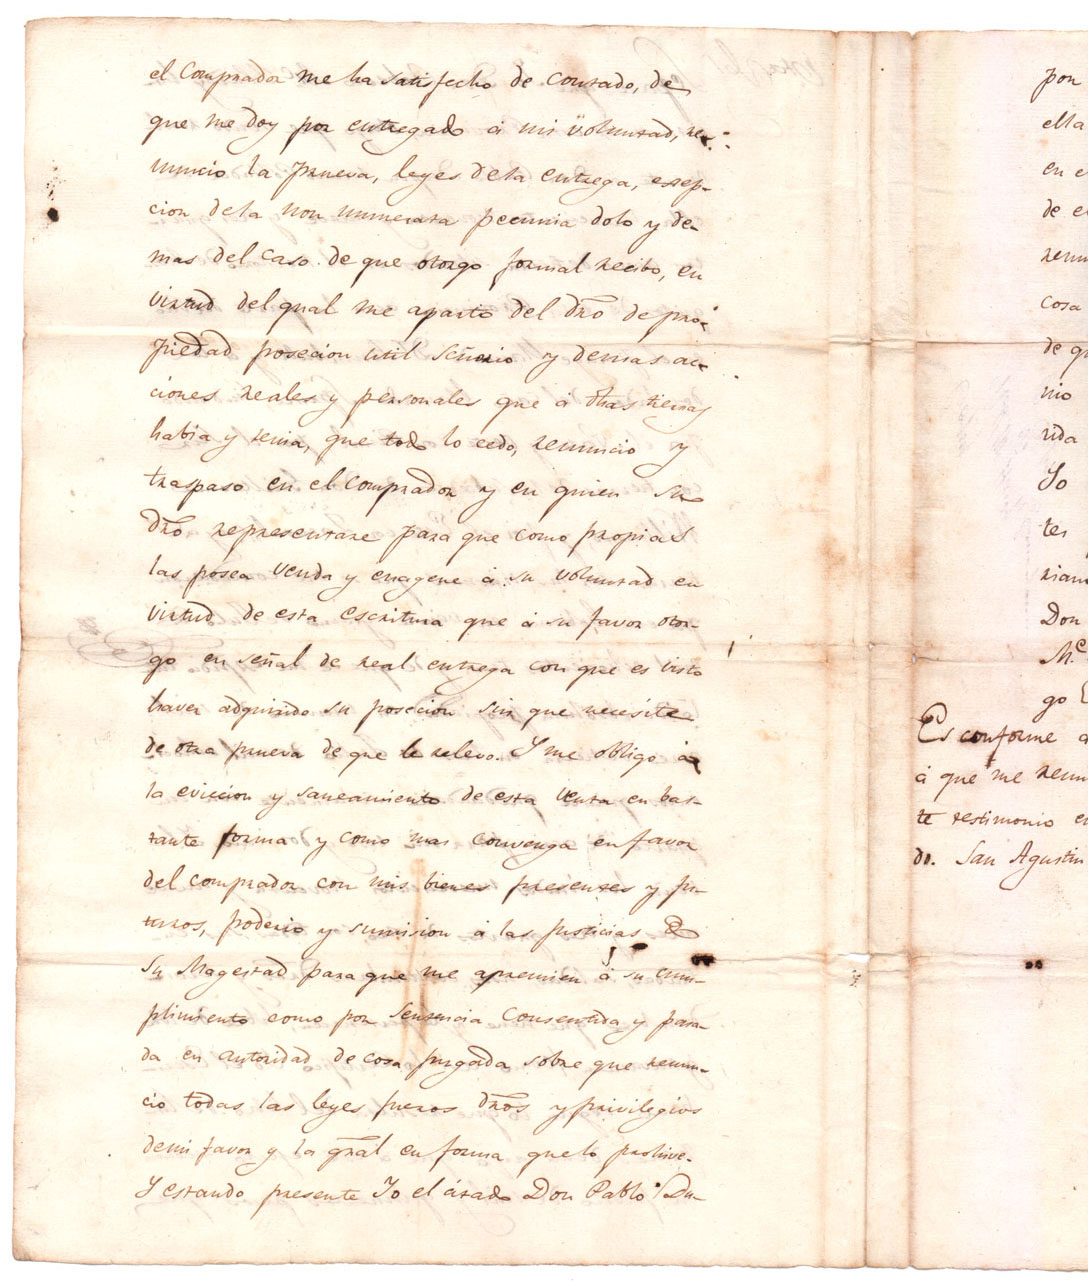 el Comprador me ha satisfecho de contado, de
que me doy por entregado á mi voluntad, re-
nuncio la prueva, leyes dela entrega, esep-
cion dela non numerata pecunia dolo y de-
mas del caso de que otorgo formal recibo, en
virtud del qual me aparto del dro de pro-
piedad posecion util señorio y demas ac-
ciones reales y personales que á dhas tierras
habia y tenia, que todo lo cedo, renuncio y
traspaso en el Comprador y en quien su
dro representare para que como propias
las posea venda y enagene á su voluntad en
virtud de esta escritura que á su favor otor-
go en señal de real entrega con que es visto
haver adquirido su posecion sin que necesite
de otra prueva de que le relevo. Y me obligo á
la eviccion y saneamiento de esta venta en bas-
tante forma y como mas convenga en favor
del comprador con mis bienes presentes y fu-
turos, poderio y sumision á las Justicias de
Su Magestad para que me apremien á su cum-
plimiento como por sentencia consentida y pasa-
da en autoridad de cosa jusgada sobre que renun-
cio todas las leyes fueros dros y privilegios
demi favor y la gral en forma que lo prohive.
Y estando presente Yo el citado Don Pablo
por
ella
en e
de e
renu
cosa
de qu
nio
rida
So
tes
riam
Don
M.e
go
Es conforme a
á que me remi
te testimonio e
do. San Agustin